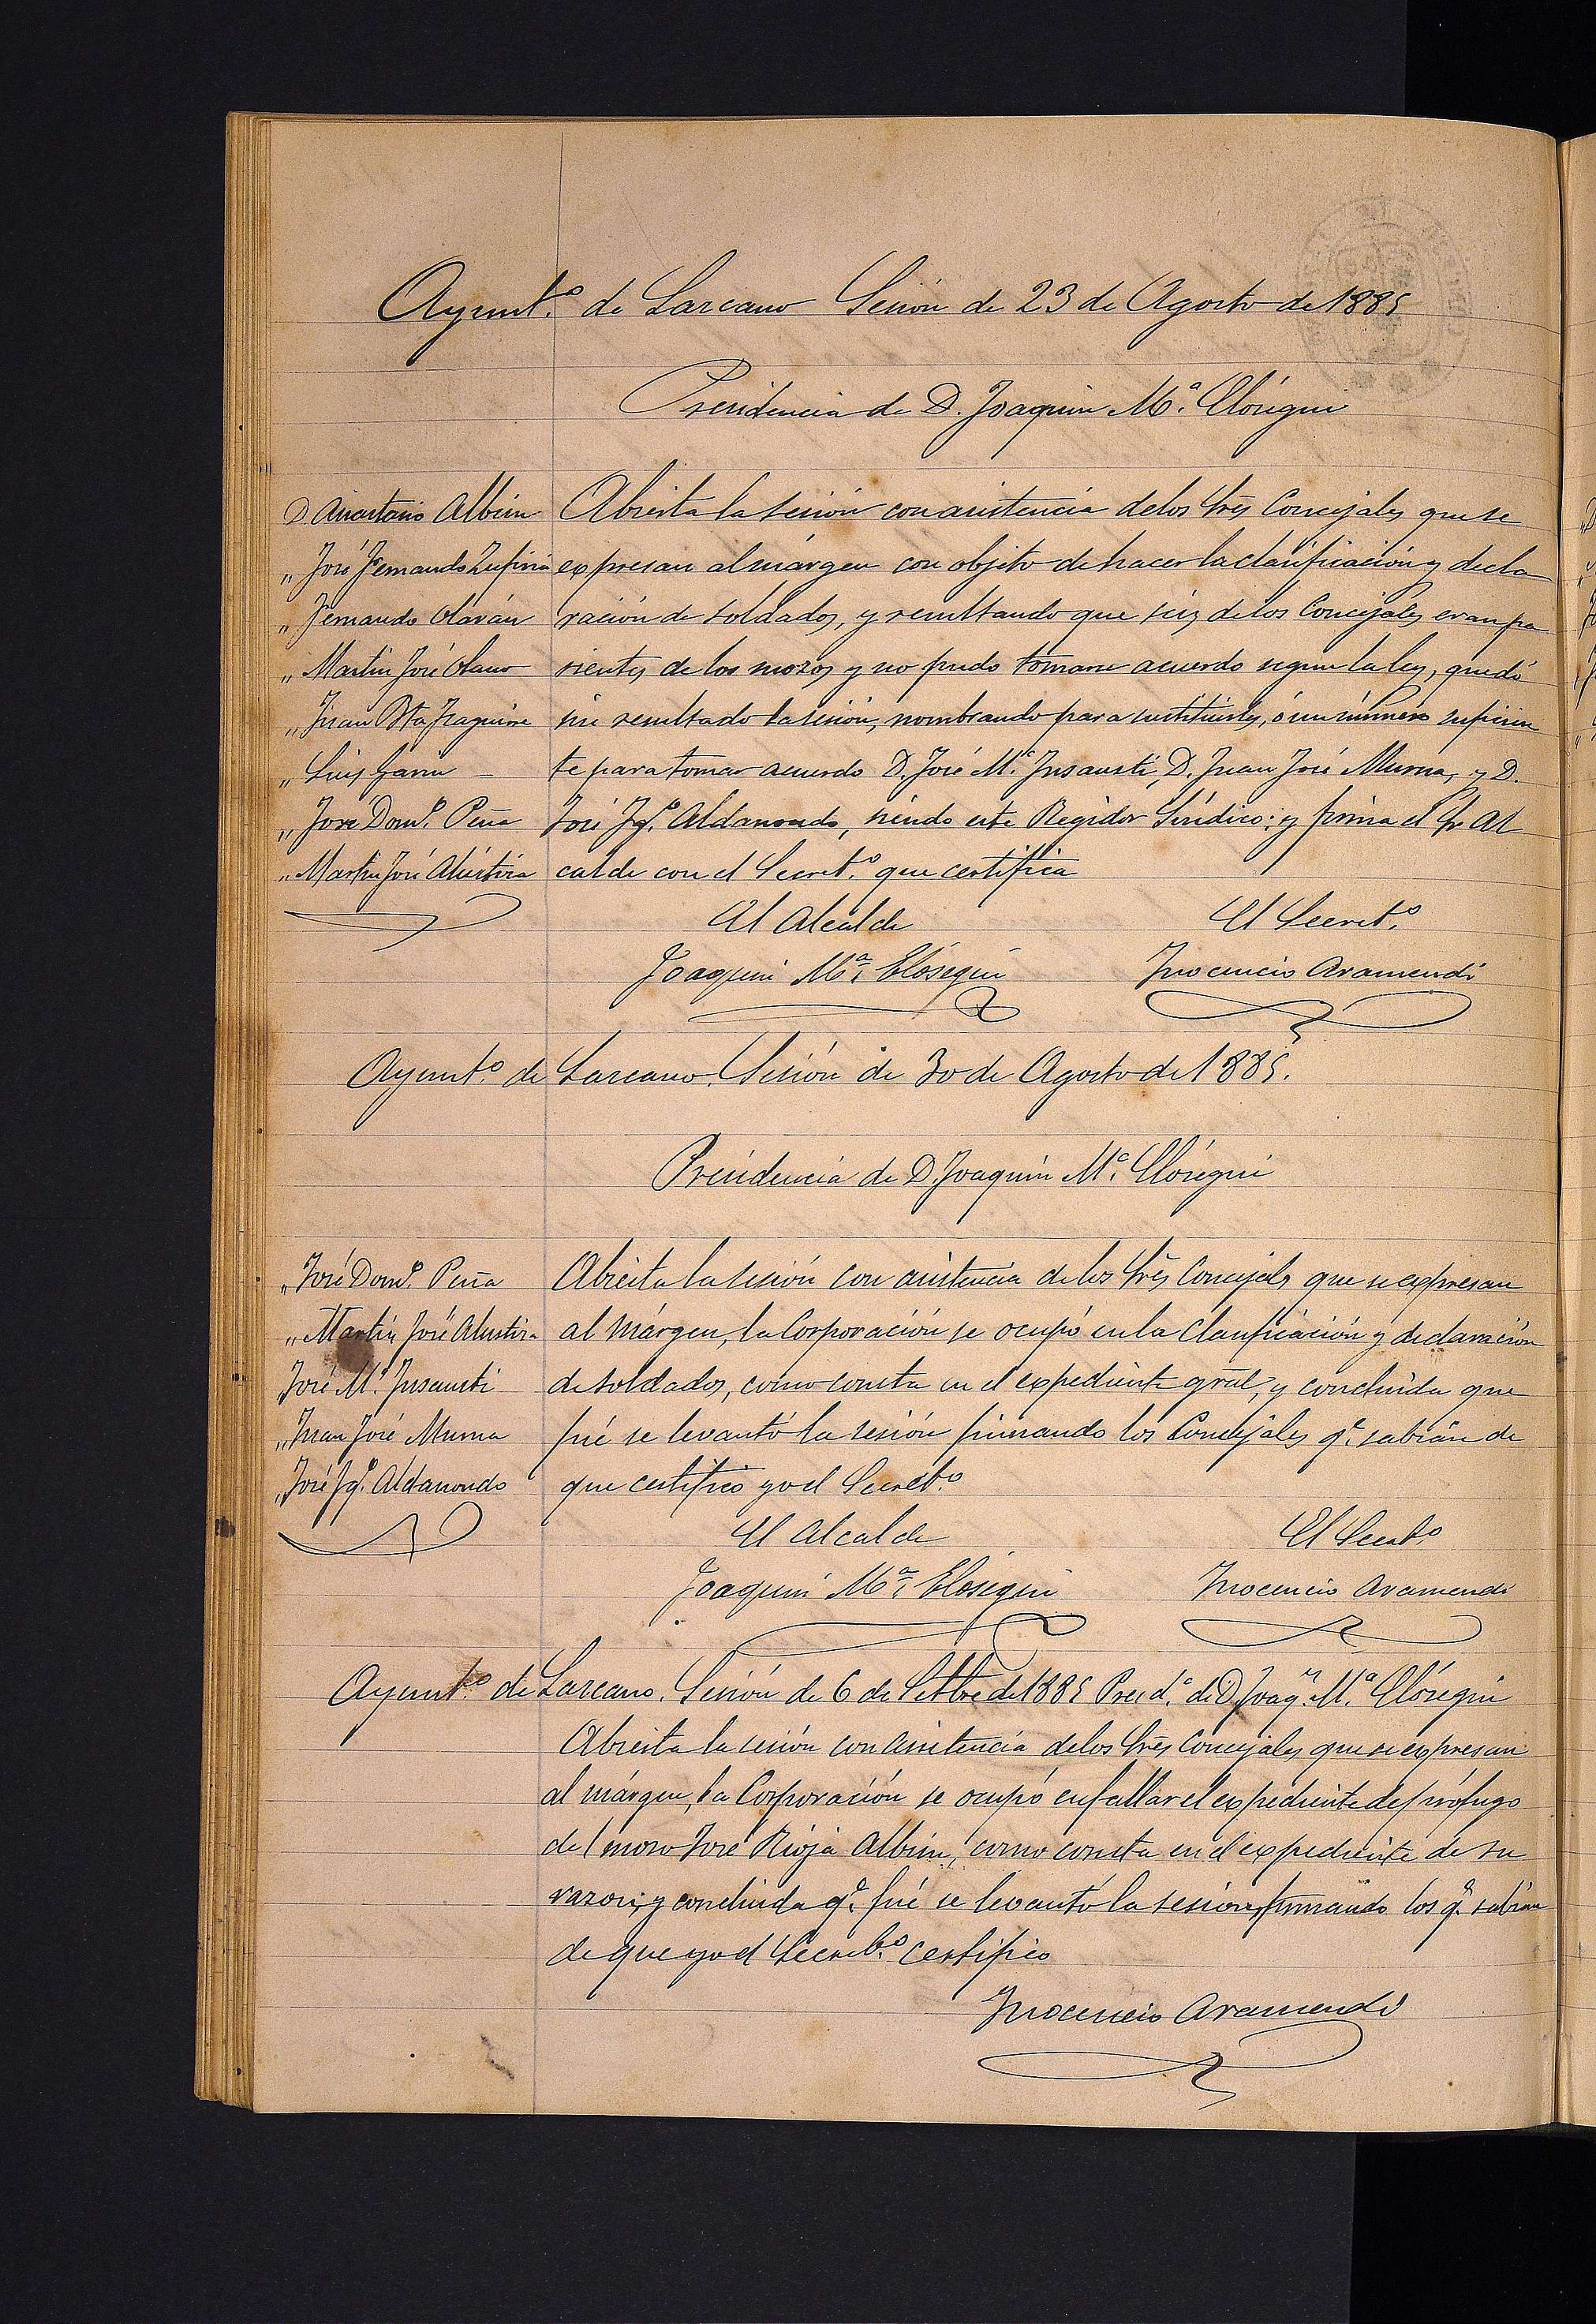 Ayunt.º de Lazcano Sesión de 23 de Agosto de 1885
Presidencia de D. Joaquin M.ª Elósegui
D. Anastasio Albisu
„ José Fernando Zufiria
„ Fernando Olarán
„ Martin José Olano
„ Juan Bta Yraguirre
„ Luis Garin
„ José Dom.º Peña
„ Martin José Alústiza
Abierta la sesión con asistencia delos Srēs Concejales que se
expresan al márgen con objeto de hacer la clasificación y decla
ración de soldados, y resultando que seis de los Concejales eran pa
rientes de los mozos y no pudo tomarse acuerdo segun la ley, quedó
sin resultado la sesión, nombrando para sustituirles, ó un número suficien
te para tomar acuerdo D. José M.ª Insausti, D. Juan José Murua, y D.
José Ygº. Aldanondo, siendo este Regidor Síndico: y firma el Sr Al
calde con el Secret.º que certifica
El Alcalde
El Secret.º
Joaquin M.ª Elósegui
Ynocencio Aramendi
Ayunt.º de Lazcano. Sesión de 30 de Agosto de 1885.
Presidencia de D. Joaquin M.ª Elósegui
„ José Dom.º Peña
„ Martin José Alustiza
José M.ª Insausti
„ Juan José Murua
„ José Ygº. Aldanondo
Abierta la sesión con asistencia de los Srēs Concejales que se expresan
al márgen, la Corporación se ocupó en la clasificación y declaración
de soldados, como consta en el expediente gral, y concluida que
fué se levantó la sesión firmando los Concejales q.e sabian de
que certifico yo el Secret.º
El Alcalde
El Secret.º
Joaquin M.ª Elósegui
Ynocencio Aramendi
Ayunt.º de Lazcano. Sesión de 6 de Setbre de 1885 Presid.ª de D. Joaq.n M.ª Elósegui
Abierta la sesión con asistencia delos Srēs Concejales que se expresan
al márgen, la Corporación se ocupó en fallar el expediente de prófugo
del mozo José Rioja Albisu, como consta en el expediente de su
razon; y concluida q.e fué se levantó la sesion, firmando los q.e sabian
de que yo el Secret.º certifico
Ynocencio Aramendi